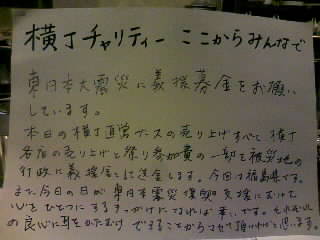 横丁チャリティー ここからみんなで
東日本大震災に義援募金をお願い
しています。
本日の横丁直営ブースの売り上げすべて 横丁
各店の売り上げと祭り参加費の一部を被災地の
行政に義援金として送金します。今回は福島県です。
また、今日の日が東日本震災復興支援にむけて
心をひとつにするきっかけになれば幸いです。それぞれ
の良心に耳をかたむけ できることからさせて頂ければと思います。